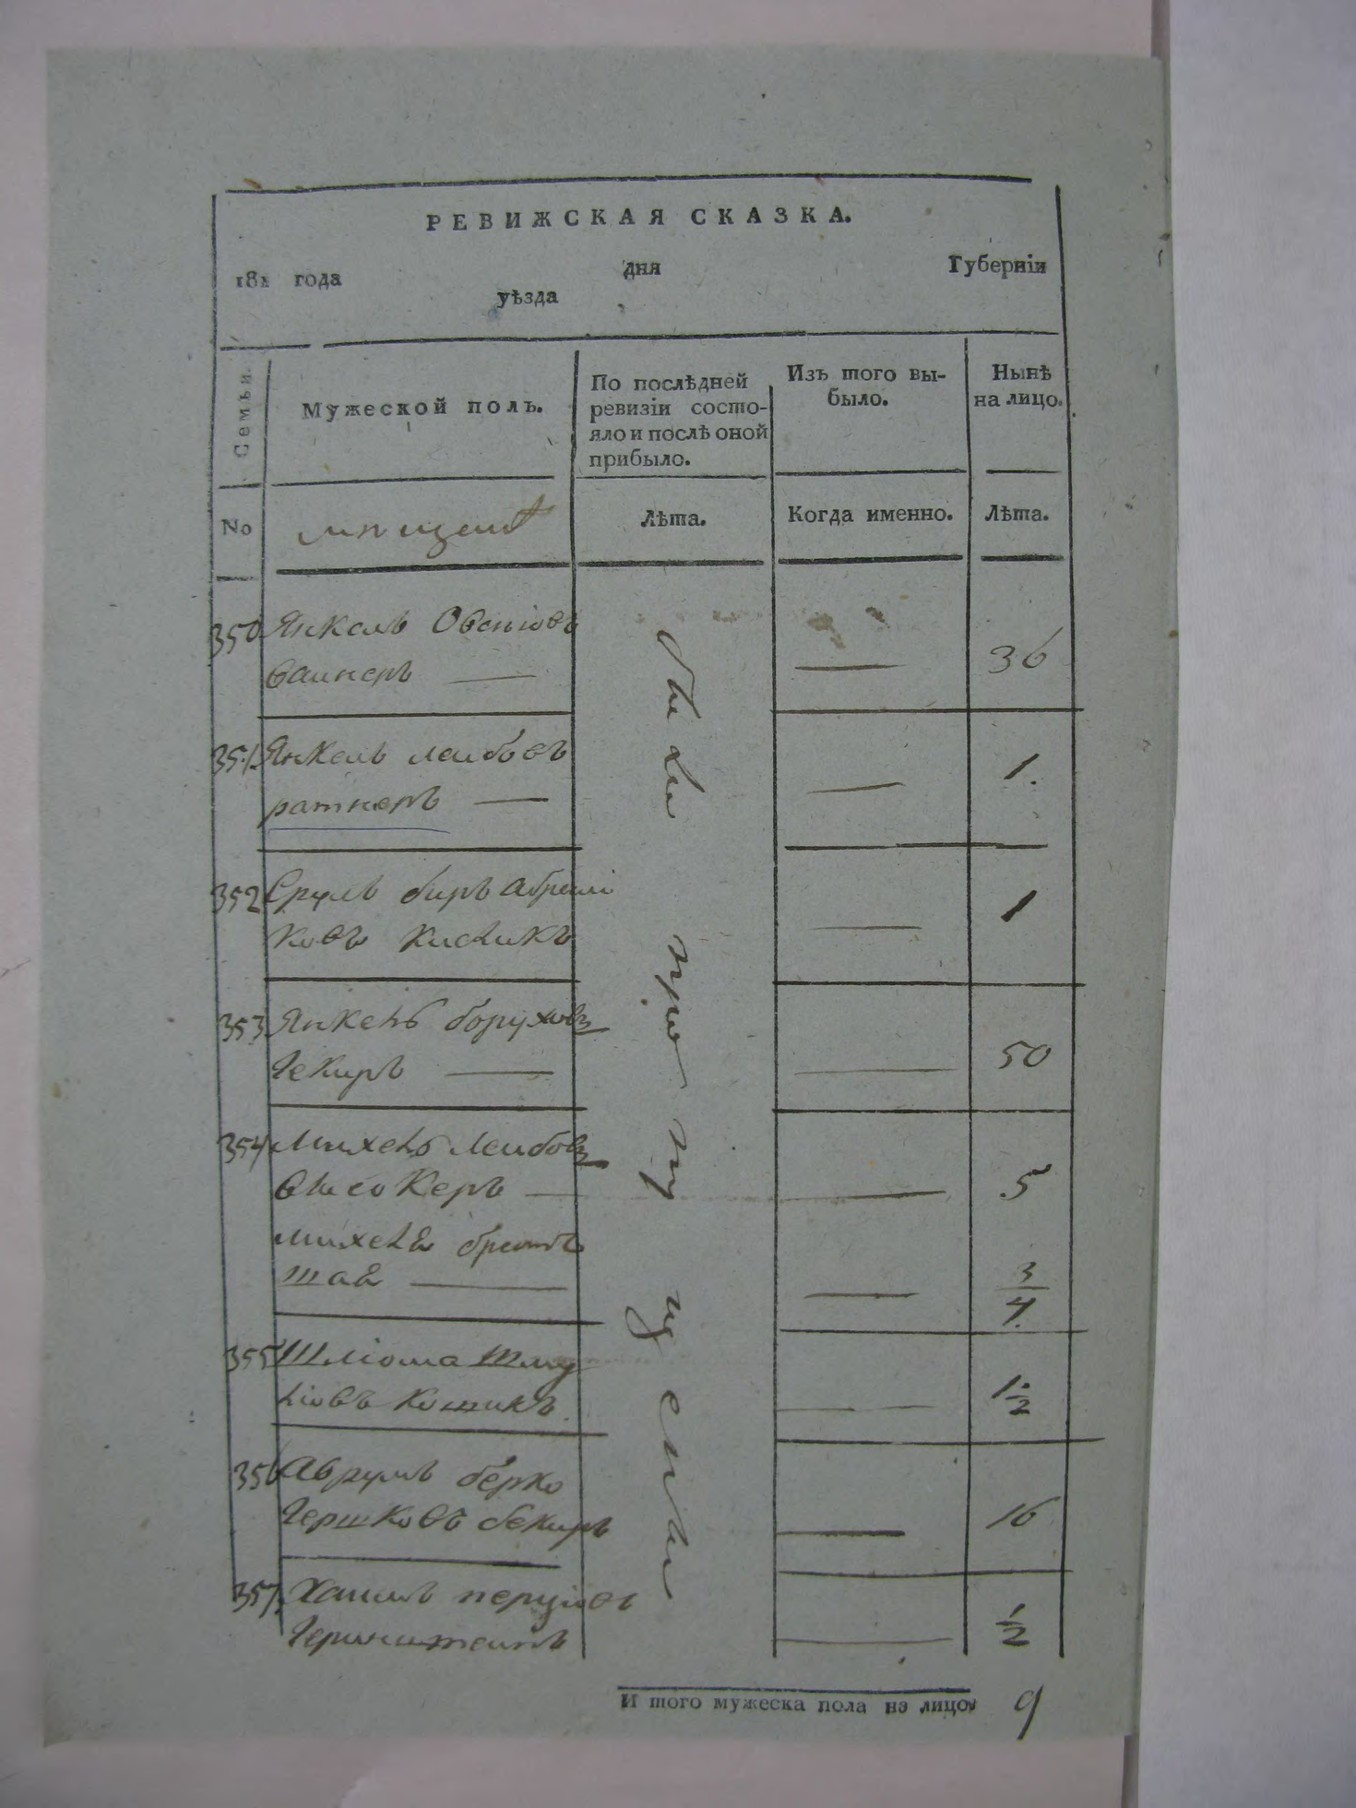 РЕВИЖСКАЯ СКАЗКА.
181 года дня Губерніи
уѣзда
Семьи.
Мужеской полъ.
По послѣдней
ревизіи состо-
яло и послѣ оной
прибыло.
Изъ того вы-
было.
Нынѣ
на лицо.
No
Лѣта.
Когда именно.
Лѣта.
были пропущены
350 Янкель 36
ваинеръ —
351 Янкель леибовъ 1.
ратнеръ —
352 Сруль биръ абрамі
ковъ кисликъ 1
353 Янкель боруховъ
чекиръ — 50
354 Михель леибовъ
высокеръ — 5
михеля братъ
шая — 3/4
355 Шліома шму
ліовъ кошикъ 1 1/2
356 Аврумъ берко
гершковъ бекиръ 16
357. Хаимъ
1/2
И того мужеска пола на лицо 9